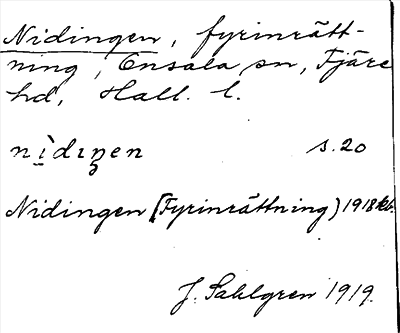 Nidingen, fyrinrätt-
ning, Onsala sn, Fjäre
hd, Hall. l.
nìdıŋen s. 20
Nidingen (Fyrinrättning) 1918
J. Sahlgren 1919.